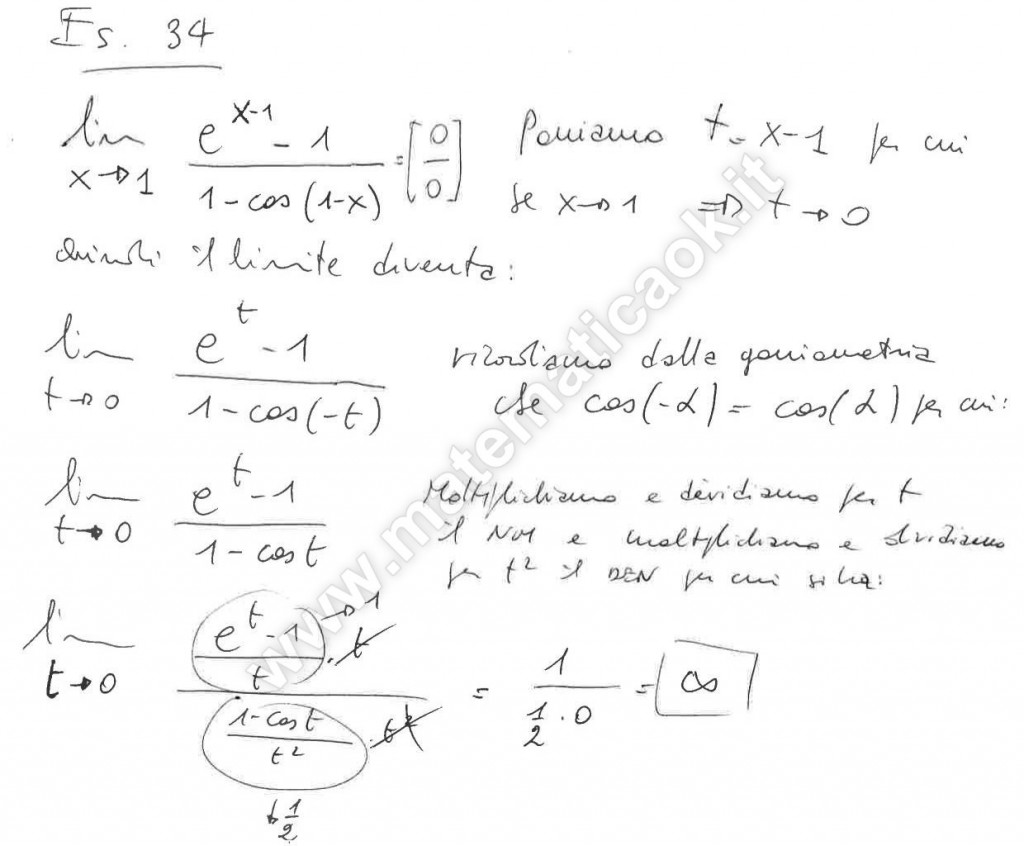 Es. 34
lim x→1 (e^(x-1) - 1) / (1 - cos(1-x)) = [0/0] Poniamo t = x-1 per cui
se x→1 ⇒ t→0
Quindi il limite diventa:
lim t→0 (e^t - 1) / (1 - cos(-t)) ricordiamo dalla goniometria
che cos(-α) = cos(α) per cui:
lim t→0 (e^t - 1) / (1 - cos t) Moltiplichiamo e dividiamo per t
il NUM e moltiplichiamo e dividiamo
per t² il DEN per cui si ha:
lim t→0 ((e^t - 1)/t →1 · t) / ((1 - cos t)/t² →1/2 · t²) = 1 / (1/2 · 0) = ∞
www.matematicaok.it